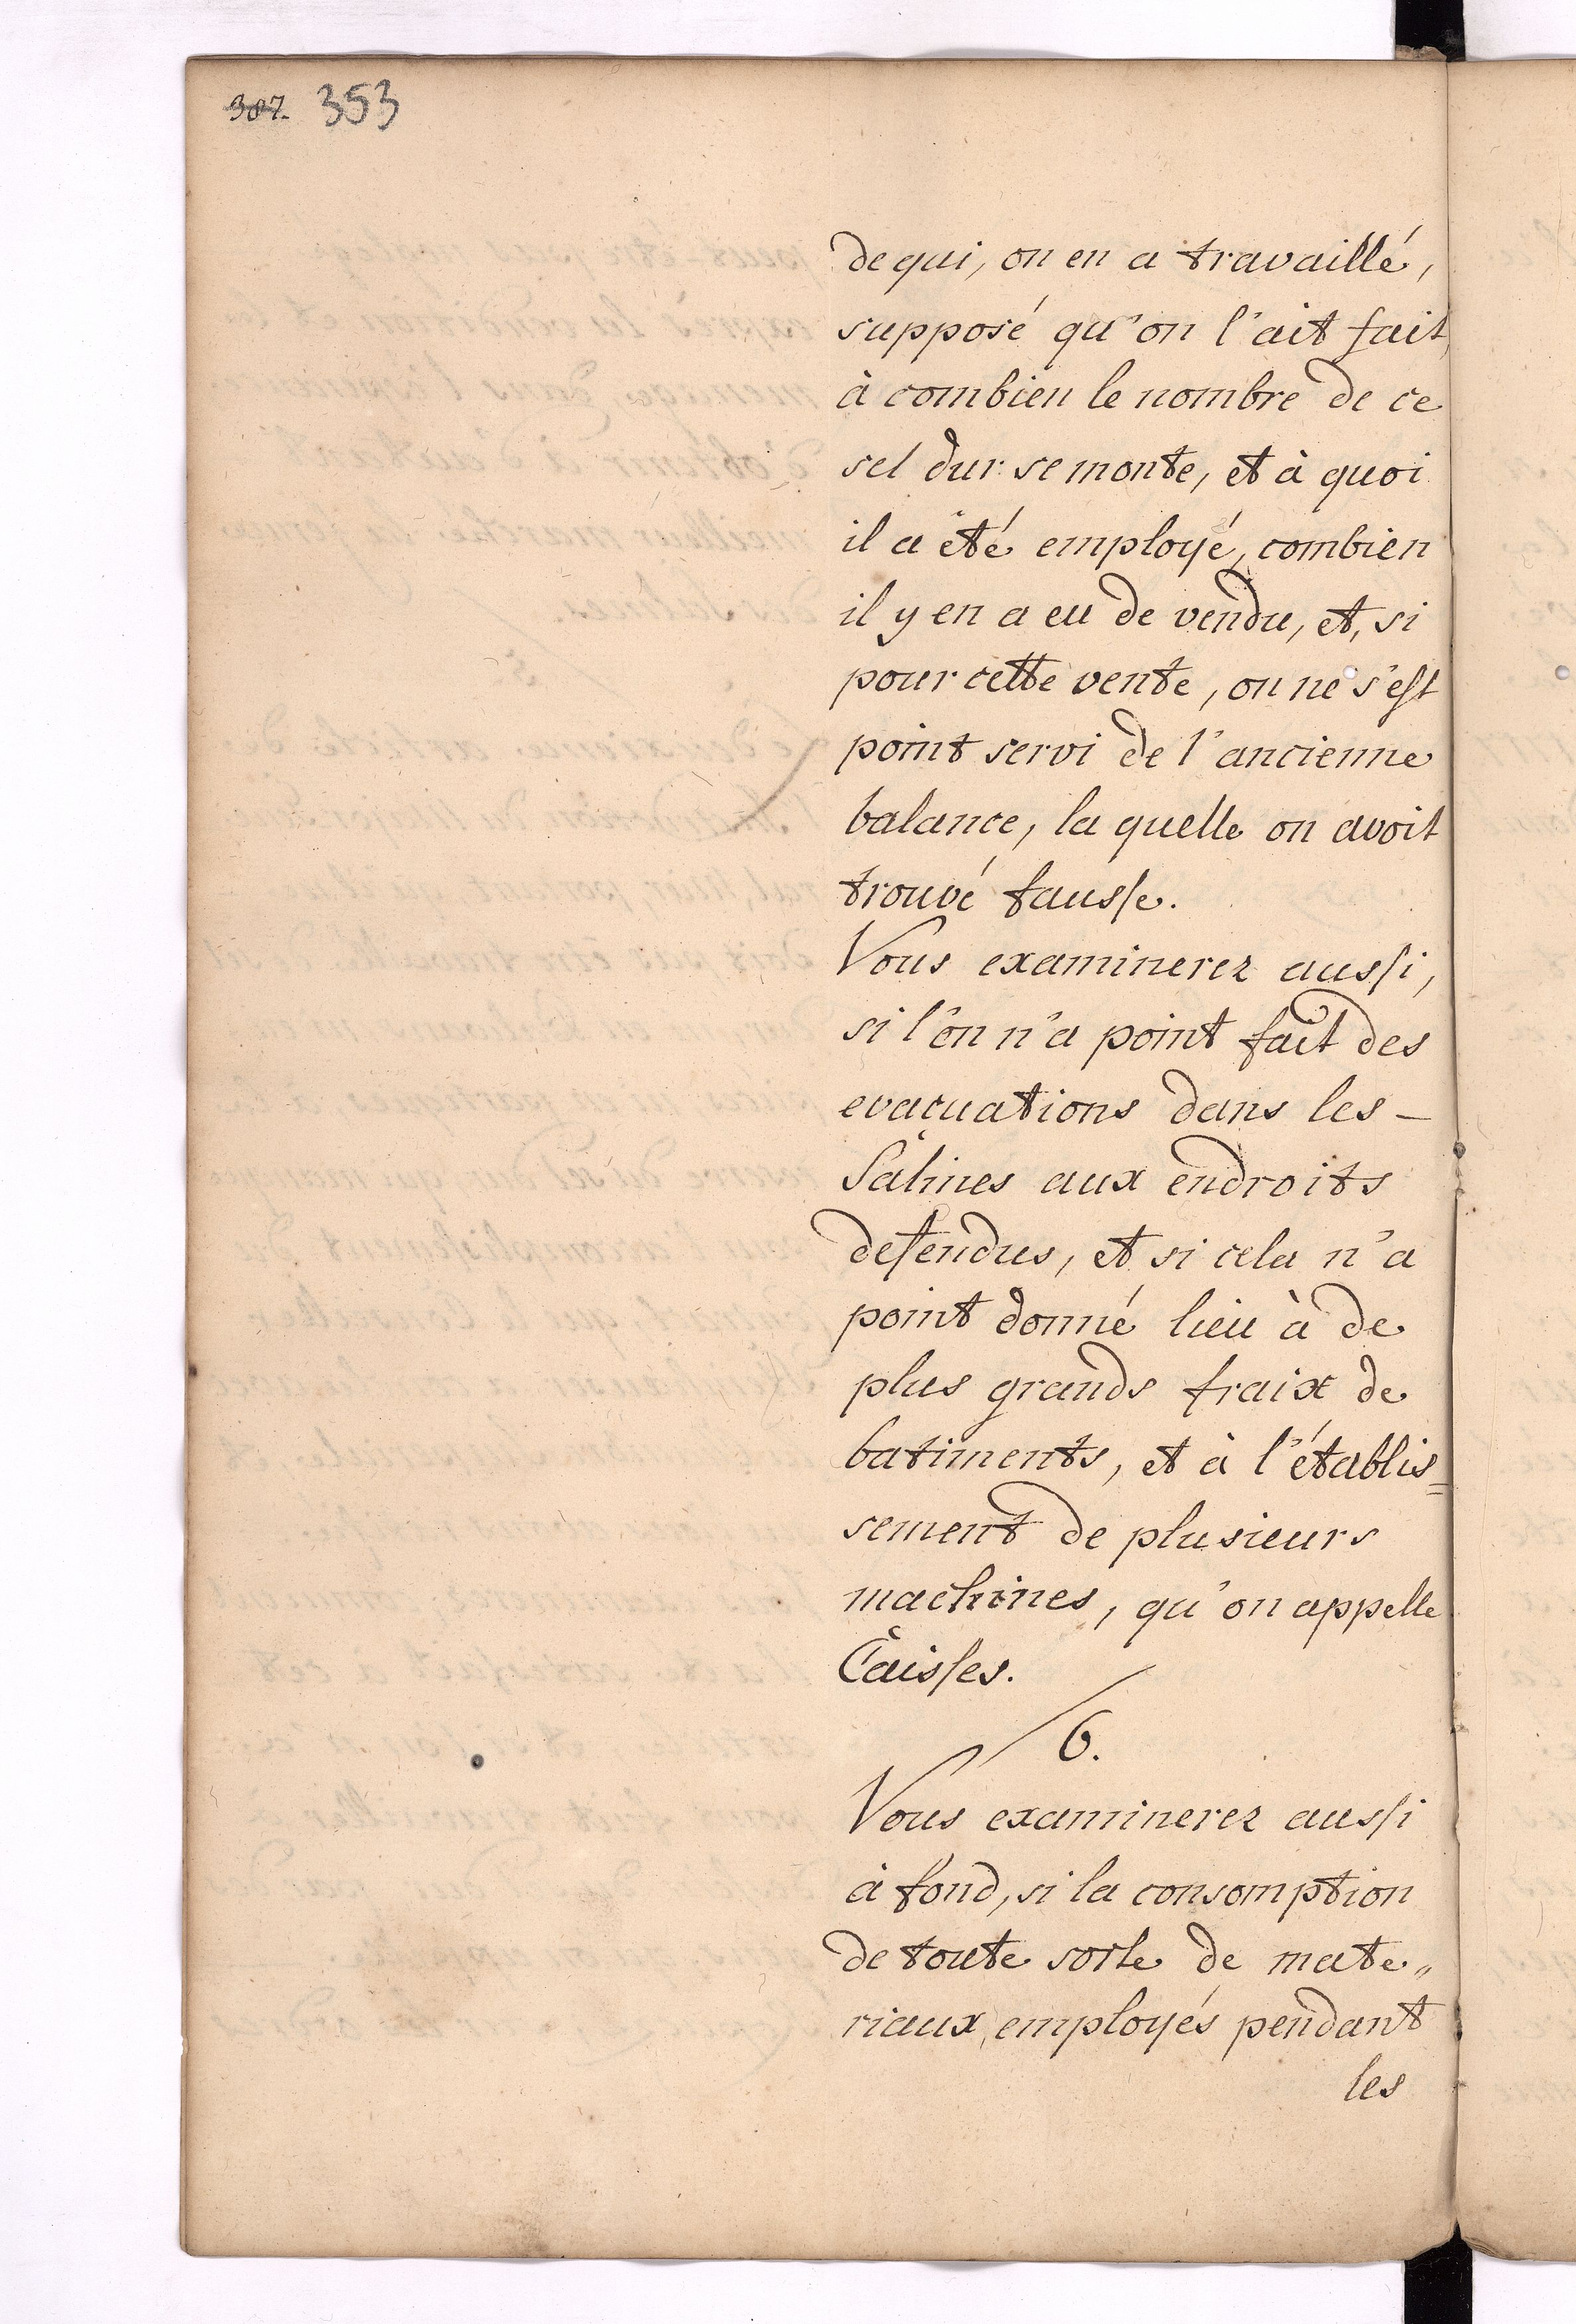 387. 353
de qui, on en a travaillé,
supposé qu'on l'ait fait,
à combien le nombre de ce
sel dur se monte, et à quoi
il a été employé, combien
il y en a eu de vendu, et, si
pour cette vente, on ne s'est
point servi de l'ancienne
balance, la quelle on avoit
trouvé fausse.
Vous examinerez aussi,
si l'on n'a point fait des
evacuations dans les –
Salines aux endroits
defendus, et si cela n'a
point donné lieu à de
plus grands fraix de
batiments, et à l'établis=
sement de plusieurs
machines, qu'on appelle
Caisses.
6.
Vous examinerez aussi
à fond, si la consomption
de toute sorte de mate„
riaux, employés pendant
les